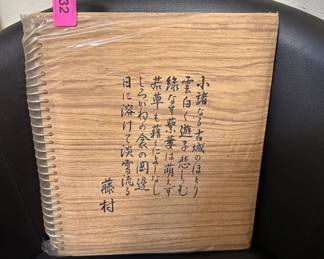 32
小諸なる古城のほとり
雲白く遊子悲しむ
緑なす蘩蔞は萌えず
若草も藉くによしなし
しろがねの衾の岡邊
日に溶けて淡雪流る
藤村